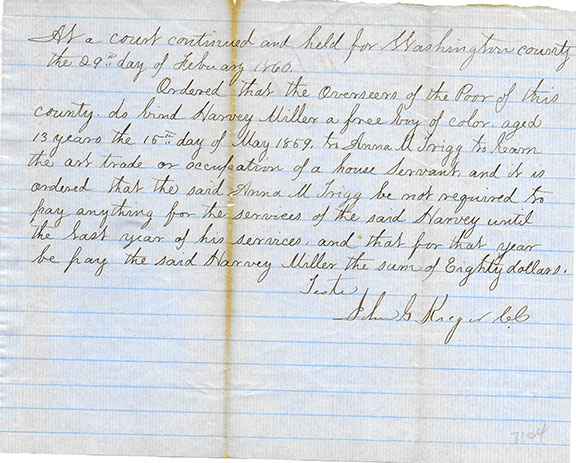 At a court continued and held for Washington county
the 29th day of Febuary 1860.
Ordered that the Overseers of the Poor of this
county do bind Harvey Miller a free boy of color aged
13 years the 15th day of May 1859. to Anna M Trigg to learn
the art trade or occupation of a house servant, and it is
ordered that the said Anna M Trigg be not required to
pay anything for the services of the said Harvey until
the last year of his services, and that for that year
be pay the said Harvey Miller the sum of Eighty dollars.
Teste
John G Kreger CC
7104